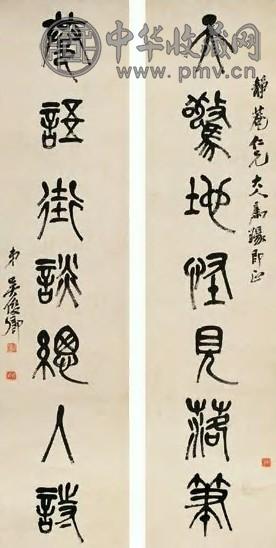 中华收藏网
www.pmv.cn
靜菴仁兄大人屬篆即正
天驚地怪見落筆
巷語街談總入詩
弟吳俊卿